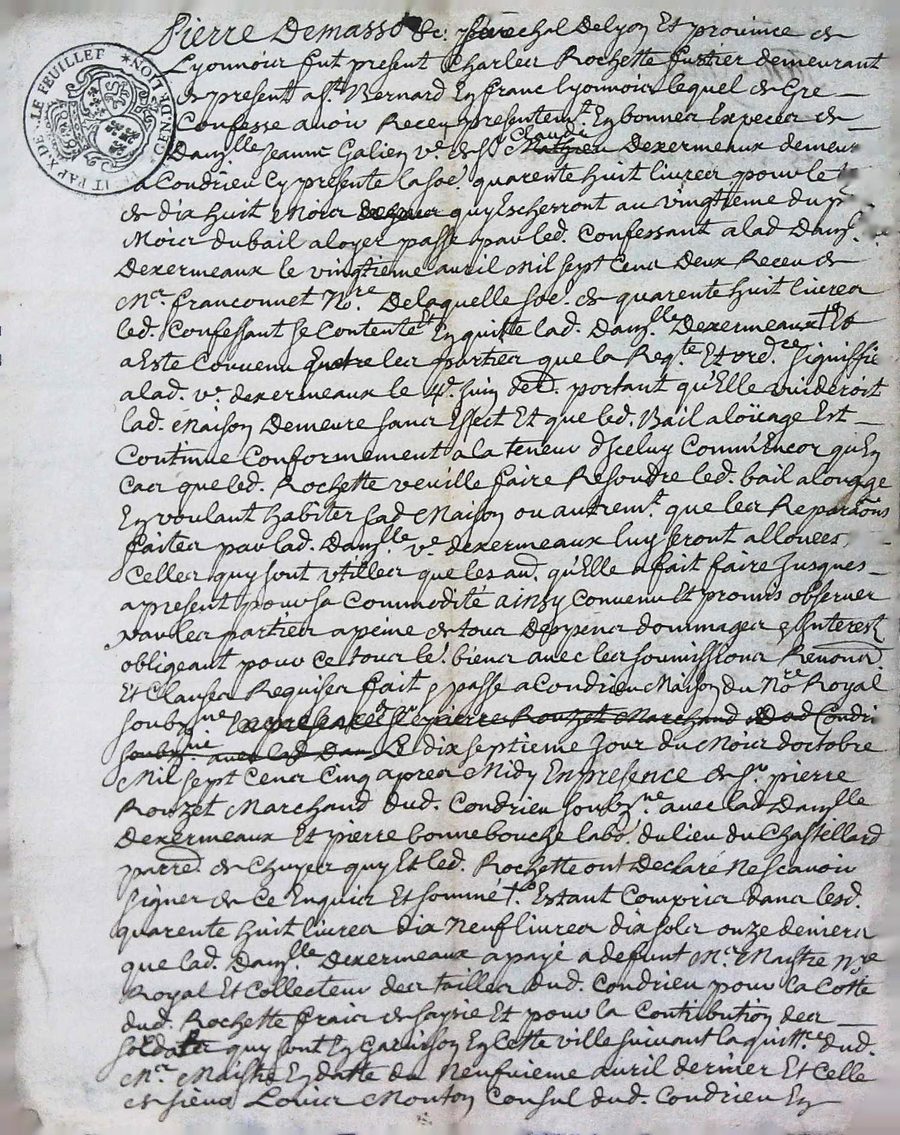 Pierre Demasso Sc. Senechal Delyon Et province de
Lyonnois fut present Charles Rochette fustier demeurant
de present a St. Bernard En franc lyonnois lequel de Gré
Confesse avoir Receu presentemt. En bonnes Especes de
Damlle Jeanne Galien ve. de Sr. Claude Mathieu Dexermeaux demeurt
a Condrieu Cy presente la soe. quarente huit livres pour le
de dix huit Mois quy Escherront au vingtieme du pnt
Mois du bail a loyer passé par led. Confessant a lad Damlle.
Dexermeaux le vingtieme avril Mil sept Cens Deux Receu de
Me. franconnet Nore. De laquelle soe. de quarente huit livres
led. Confessant se Contente Et En quitte lad. Damlle Dexermeaux Et
a Este Convenu Entre les parties que la Reqte Et ordce signiffié
a lad. ve. dexermeaux le 4e. Juin portant qu'Elle vuideroit
lad. Maison Demeure sans Effect Et que led. Bail a loüage Est
Continué Conformement a la teneur d'Iceluy Comm'Encor qu'En
Cas que led. Rochette veuille faire Resoudre led. bail a louage
En voulant habiter sad Maison ou autremt. que les Reparaons
faites par lad. Damlle. ve. dexermeaux luy seront allouées
Celles quy sont utilles que les au. qu'Elle a fait faire Jusques
a present pour sa Commodité ainsy Convenu Et promis observer
par les parties a peine de tous Despens dommages & Interest
obligeant pour Ce tous le. biens avec les soumissions Renons.
Et Clauses Requises fait & passé a Condrieu Maison du Nore Royal
soubzne En presence de Sr. pierre Rouzet Marchand dud Condri
soubzne avec lad Dam Le dix septieme Jour du Mois d'octobre
Mil sept Cens Cinq apres Midy En presence de Sr. pierre
Rouzet Marchand dud. Condrieu soubzne. avec lad Damlle
Dexermeaux Et pierre bonnebouche labo. du lieu du Chastellard
parre. de Chuyer quy Et led. Rochette ont Declaré Ne scavoir
signer de Ce Enquis Et sommé Estant Compris dans lesd.
quarente huit livres dix Neuf livres dix sols onze deniers
que lad. Damlle Dexermeaux a payé a defunt Me. Maistre Nre
Royal Et Collecteur des tailles dud. Condrieu pour la Cotte
dud. Rochette frais de saysie Et pour la Contribution des
soldats quy sont En Garnison En Cette ville suivant la quittce. dud.
Me. Maistre En datte du Neufvieme avril dernier Et Celle
de sieur Louis Monton Consul dud. Condrieu En